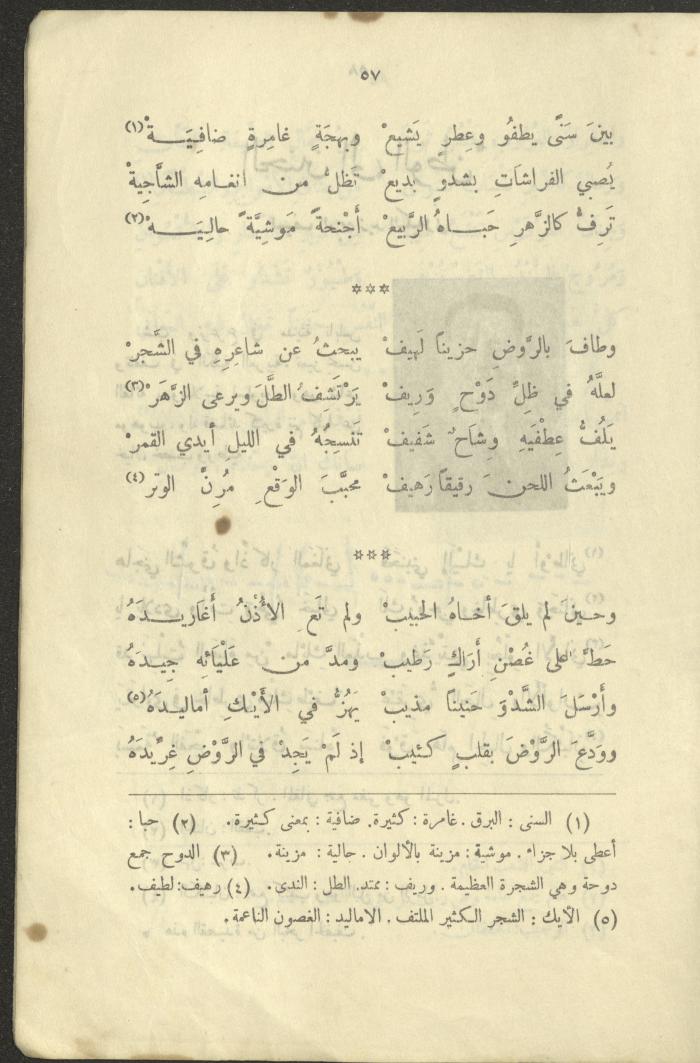 ٥٧
بينَ سَنًى يطفُو وعِطرٍ يَشيعْ وبهجَةٍ غامِرةٍ ضافِيَةْ(١)
يُصبي الفراشَاتِ بشدوٍ بديعْ تَظلُّ من انغامِهِ الشَّاجِيةْ
تَرِفُّ كالزَّهرِ حَبَاهُ الرَّبيعْ أَجْنحةً مَوشِيَّةً حالِيَةْ(٢)
***
وطافَ بالرَّوضِ حزيناً لَهِيفْ يبحثُ عن شاعِرِهِ في الشَّجرْ
لعلَّهُ في ظِلِّ دَوْحٍ وَرِيفْ يَرْتَشِفُ الطَّلَ ويرعى الزَّهَرْ(٣)
يَلُفُّ عِطْفَيهِ وِشاحٌ شَفيفْ تَنْسجُهُ في الليلِ أيدي القمرْ
ويَبْعَثُ اللحنَ رقيقاً رَهيفْ محبَّبَ الوَقْعِ مُرِنَّ الوتر(٤)
***
وحينَ لم يلقَ أخاهُ الحبيبْ ولم تَعِ الأُذْنُ أَغَاريدَهُ
حَطَّ على غُصْنِ أَرَاكٍ رَطيبْ ومدَّ من عَلْيَائِه جِيدَهُ
وأَرْسَلَ الشَّدْوَ حَنيناً مذيبْ يَهُزُّ في الأَيْكِ أماليدَهُ(٥)
وودَّعَ الرَّوْضَ بقلبٍ كئيبْ إذ لَمْ يَجِدْ في الرَّوْضِ غِرِّيدَهُ
(١) السنى : البرق . غامرة : كثيرة . ضافية : بمعنى كثيرة . (٢) حبا :
أعطى بلا جزاء . موشية : مزينة بالألوان . حالية : مزينة . (٣) الدوح جمع
دوحة وهي الشجرة العظيمة . وريف : ممتد . الطل : الندى . (٤) رهيف : لطيف .
(٥) الأيك : الشجر الكثير الملتف . الاماليد : الغصون الناعمة .